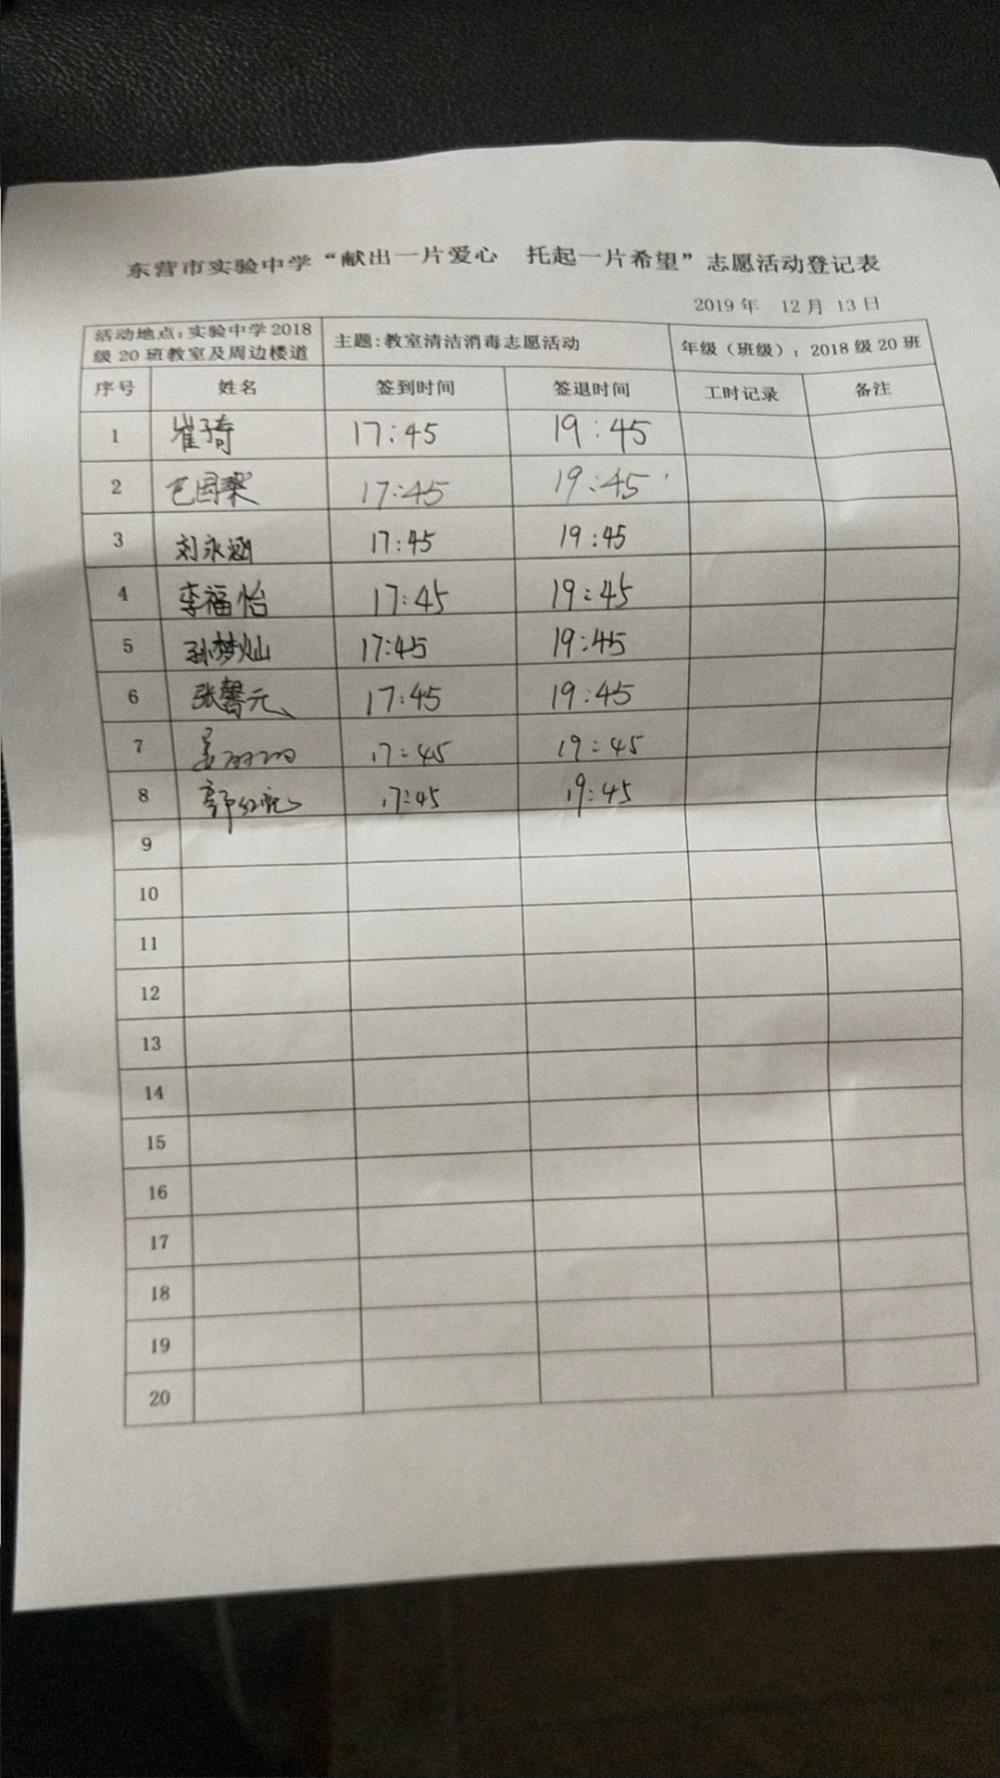 东营市实验中学“献出一片爱心 托起一片希望”志愿活动登记表
2019 年 12 月 13 日
活动地点：实验中学2018级20班教室及周边楼道 主题：教室清洁消毒志愿活动 年级（班级）：2018 级 20 班
序号 姓名 签到时间 签退时间 工时记录 备注
1 崔子琦 17:45 19:45
2 17:45 19:45
3 刘永涵 17:45 19:45
4 李福怡 17:45 19:45
5 孙梦灿 17:45 19:45
6 张馨元 17:45 19:45
7 17:45 19:45
8 17:45 19:45
9
10
11
12
13
14
15
16
17
18
19
20